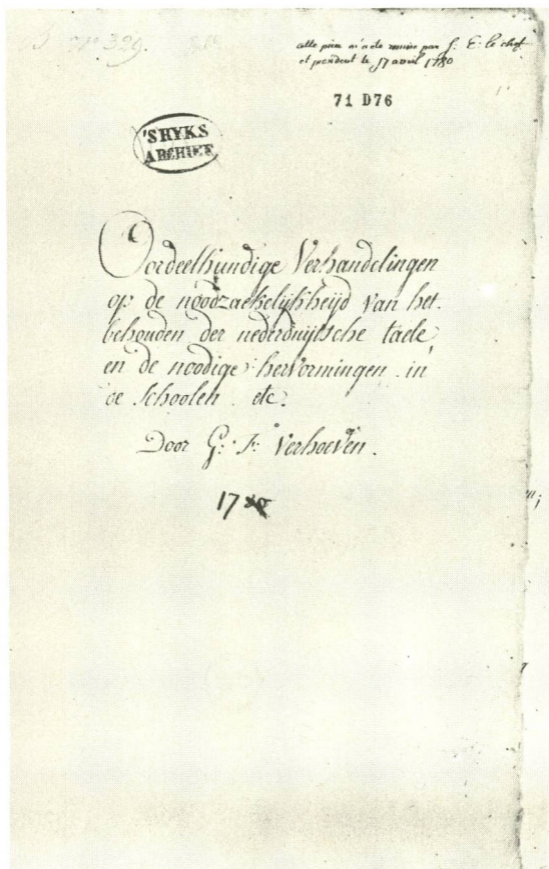 B nº 329.
cette piece m'a eté remise par S. E. le chef
et president le 17 avril 1780
71 D76
'SRYKS
ARCHIEF
Oordeelkundige Verhandelingen
op de noodzaekelijkheijd van het
behouden der nederduijtsche taele,
en de noodige hervormingen in
de schoolen etc.
Door G: F: Verhoeven.
17